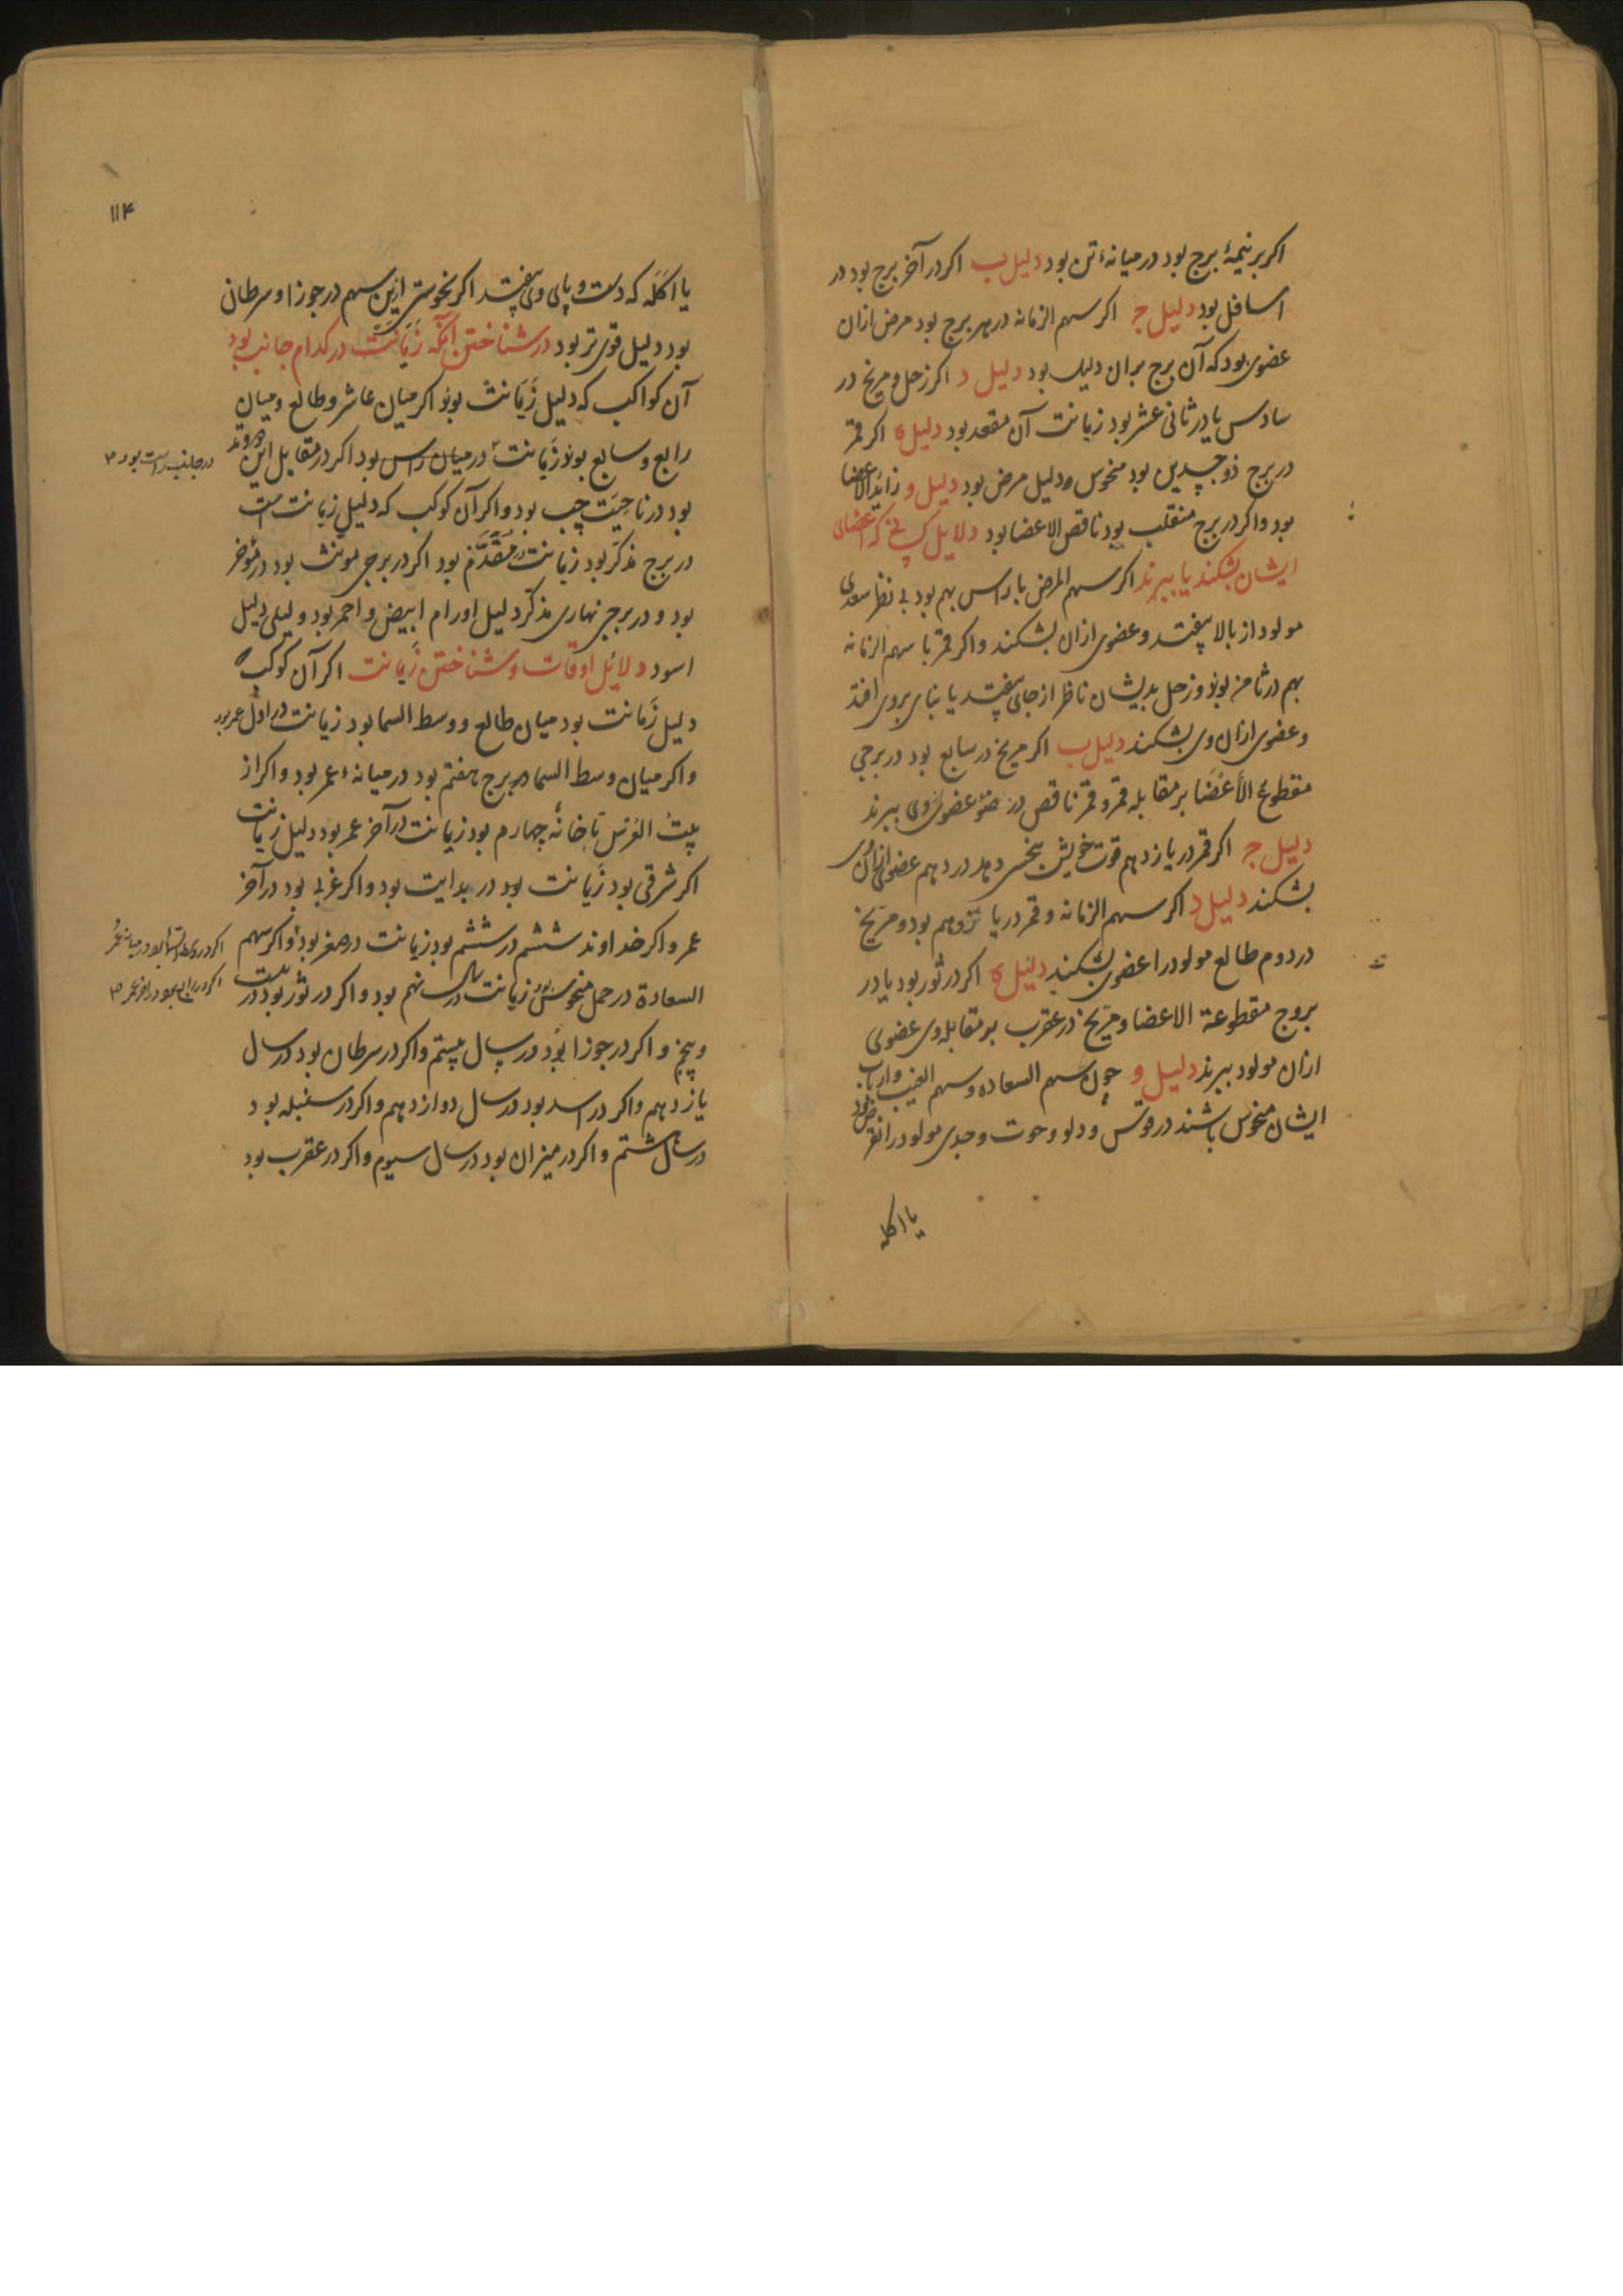 اکر بر نیمهٔ برج بود در میانهٔ تن بود دلیل ب اکر در آخر برج بود در
اسافل بود دلیل ج اکر سهم الزمانه در هر برج بود مرض ازان
عضوی بود که آن برج بران دلیل بود دلیل د اکر زحل و مریخ در
سادس یا در ثانی عشر بود زمانت آن مقعد بود دلیل ه اکر قمر
در برج ذو جسدین بود منحوس دلیل مرض بود دلیل و زائد الاعضا
بود و اکر در برج منقلب بود ناقص الاعضا بود دلایل کسانی که اعضای
ایشان بشکند یا ببرند اکر سهم المرض با راس بهم بود بی نظر سعدی
مولود از بالا بیفتد و عضوی ازان بشکند و اکر قمر با سهم الزمانه
بهم در ثامن بوند و زحل بدیشان ناظر از جای بیفتد یا بنای بر وی افتد
و عضوی ازان وی بشکند دلیل ب اکر مریخ در سابع بود در برجی
مقطوع الأعضا بر مقابله قمر و قمر ناقص در ضوء عضوی از وی ببرند
دلیل ج اکر قمر در یازدهم قوت خویش بنحسی دهد در دهم عضوی ازان وی
بشکند دلیل د اکر سهم الزمانه و قمر در یازدهم بود و مریخ
در دوم طالع مولود را عضوی بشکند دلیل ه اکر در ثور بود یا در
بروج مقطوعة الاعضا و مریخ در عقرب بر مقابله وی عضوی
ازان مولود ببرند دلیل و چون سهم السعاده و سهم الغیب و ارباب
ایشان منحوس باشند در قوس و دلو و حوت و جدی مولود را نقرس بود
یا اکله
۱۱۴
یا اکله که دست و پای وی بیفتد اکر نحوستی ازین سهم در جوزا و سرطان
بود دلیل قوی تر بود در شناختن آنکه زمانت در کدام جانب بود
آن کواکب که دلیل زمانت بوند اکر میان عاشر و طالع و میان
رابع و سابع بوند زمانت در میان راس بود اکر در مقابل این هر دو وتد
در جانب راست بود
بود در ناحیت چپ بود و اکر آن کوکب که دلیل زمانت است
در برج مذکر بود زمانت در مقدم بود اکر در برجی مونث بود در مؤخر
بود و در برجی نهاری مذکر دلیل اورام ابیض و احمر بود و لیلی دلیل
اسود دلائل اوقات و شناختن زمانت اکر آن کوکب که
دلیل زمانت بود میان طالع و وسط السما بود زمانت در اول عمر بود
و اکر میان وسط السما و برج هفتم بود در میانهٔ عمر بود و اکر از
بیت العرس تا خانهٔ چهارم بود زمانت در آخر عمر بود دلیل زمانت
اکر شرقی بود زمانت بود در بدایت بود و اکر غربی بود در آخر
عمر و اکر خداوند ششم در ششم بود زمانت در صغر بود و اکر سهم
اکر در وسط السما بود در میانه عمر
السعادة در حمل منحوس بود زمانت در سال نهم بود و اکر در ثور بود در بیست
اکر در رابع بود در آخر عمر
و پنجم و اکر در جوزا بود در سال بیستم و اکر در سرطان بود در سال
یازدهم و اکر در اسد بود در سال دوازدهم و اکر در سنبله بود
در سال هشتم و اکر در میزان بود در سال سیوم و اکر در عقرب بود